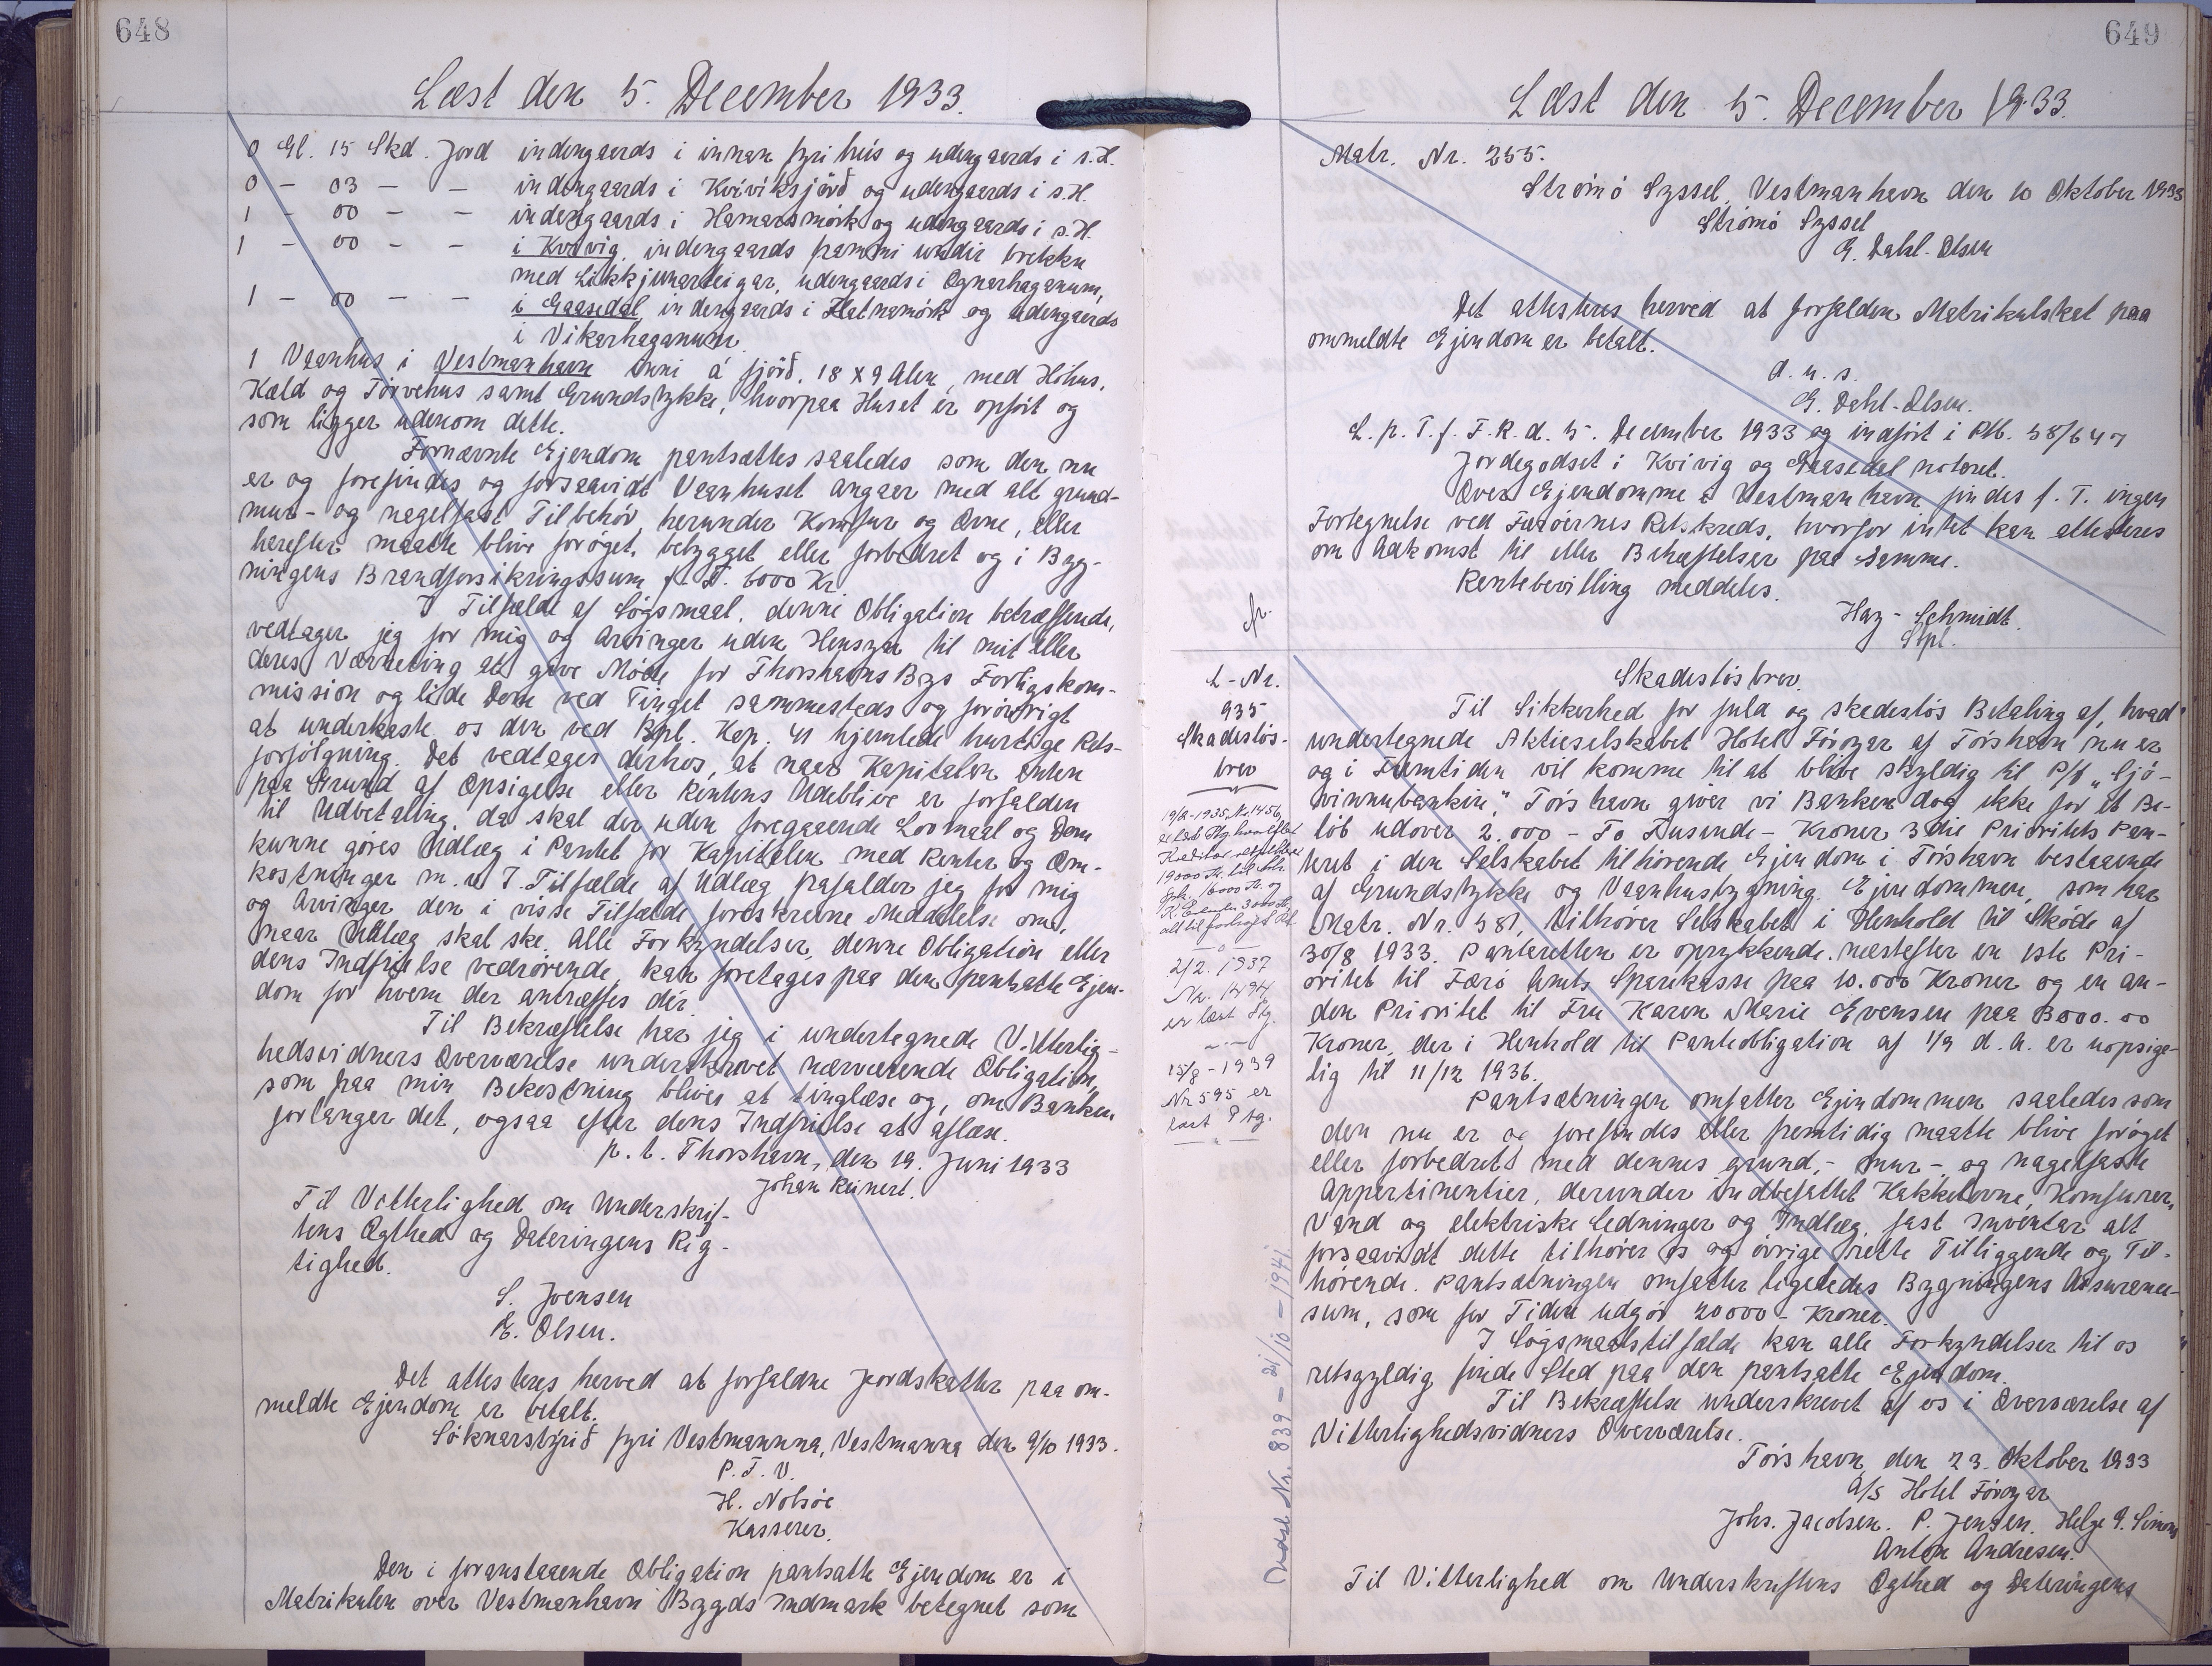 648
Læst den 5. December 1933.
0 Gl. 15 Skd. Jord indengaards i innan fyri hús og udengaards i s.H.
0 - 03 - - indengaards i Kvívíksjörð og udengaards i s.H.
1 - 00 - - indengaards i Hamarsmörk og udengaards i s.H.
1 - 00 - - i Kvivig, indengaards frammi undir brekku
med Likkjunarteigar, udengaards i Ognarhaganum,
1 - 00 - - i Gaasedal indengaards i Flatnamörk og udengaards
i Vikarhaganum.
1 Vaanhus i Vestmanhavn inni á fjörð. 18 x 9 Alen, med Höhus,
Kæld og Törvehus samt Grundstykke, hvorpaa Huset er opfört og
som ligger udenom dette.
Fornævnte Ejendom pantsættes saaledes som den nu
er og forefindes og forsaavidt Vaanhuset angaar med alt grund-
mur- og nagelfast Tilbehör, herunder Komfur og Ovne, eller
herefter maatte blive foröget, bebygget eller forbedret og i Byg-
ningens Brandforsikringssum f. T. 6000 Kr.
I Tilfælde af Sögsmaal, denne Obligation betræffende,
vedtager jeg for mig og Arvinger uden Hensyn til mit eller
deres Værneting at give Möde for Thorshavns Bys Forligskom-
mission og lide Dom ved Tinget sammesteds og forövrigt
at underkaste os den ved Rpl. Kap. 41 hjemlede hurtige Rets-
forfölgning. Det vedtages derhos, at naar Kapitalen enten
paa Grund af Opsigelse eller Rentens Udeblive er forfalden
til Udbetaling, da skal der uden foregaaende Lovmaal og Dom
kunne göres Udlæg i Pantet for Kapitalen med Renter og Om-
kostninger m. v. I Tilfælde af Udlæg frafalder jeg for mig
og Arvinger den i visse Tilfælde foreskrevne Meddelelse om,
naar Udlæg skal ske. Alle Forkyndelser, denne Obligation eller
dens Indfrielse vedrörende, kan foretages paa den pantsatte Ejen-
dom for hvem der antræffes der.
Til Bekræftelse har jeg i undertegnede Vitterlig-
hedsvidners Overværelse underskrevet nærværende Obligation,
som paa min Bekostning bliver at tinglæse og, om Banken
forlanger det, ogsaa efter dens Indfrielse at aflæse.
p. t. Thorshavn, den 19. Juni 1933
Johan Reinert.
Til Vitterlighed om Underskrif-
tens Ægthed og Dateringens Rig-
tighed.
S. Joensen
E. Olsen.
Det attesteres herved at forfaldne Jordskatter paa om-
meldte Ejendom er betalt.
Söknarstýrið fyri Vestmannna, Vestmanna den 9/10 1933.
P. F. V.
H. Nolsöe
Kasserer.
Den i foranstaaende Obligation pantsatte Ejendom er i
Matrikulen over Vestmanhavn Bygds Indmark betegnet som
649
Læst den 5. December 1933.
Matr. Nr. 255.
Strömö Syssel, Vestmanhavn den 10 Oktober 1933
Strömö Syssel
E. Dahl-Olsen
Det attesteres herved at forfalden Matrikulskat paa
ommeldte Ejendom er betalt.
d. u. s.
E. Dahl-Olsen.
L. p. T. f. F. R. d. 5. December 1933 og indfört i Ptb. 58/647
Jordegodset i Kvivig og Gaasedal noteret.
Over Ejendomme i Vestmanhavn findes f. T. ingen
Fortegnelse ved Færöernes Retskreds, hvorfor intet kan attesteres
om Adkomst til eller Behæftelser paa samme.
Rentebevilling meddeles.
Hay-Schmidt.
Stpl.
L-Nr.
935
Skadeslös-
brev
19/2-1935 Nr. 1456
2/2. 1937
Nr. 1494
er læst Ptg.
15/8-1939
Nr 595 er
læst Ptg.
Indst Nr. 839 - 21/10 - 1941
Skadeslösbrev.
Til Sikkerhed for fuld og skadeslös Betaling af, hvad
undertegnede Aktieselskabet Hotel Föroyar af Tórshavn nu er
og i Fremtiden vil komme til at blive skyldig til P/f „Sjó-
vinnubankin," Tórshavn giver vi Banken dog ikke for et Be-
löb udover 2.000 - To Tusinde - Kroner 3die Prioritets Pan-
teret i den Selskabet tilhörende Ejendom i Tórshavn bestaaende
af Grundstykke og Vaanhusbygning. Ejendommen, som har
Matr. Nr. 581, tilhörer Selskabet i Henhold til Sköde af
30/8 1933. Panteretten er oprykkende næstefter en 1ste Pri-
oritet til Færö Amts Sparekasse paa 10.000 Kroner og en an-
den Prioritet til Fru Karen Marie Evensen paa 3000.00
Kroner, der i Henhold til Panteobligation af 1/9 d. A. er uopsige-
lig til 11/12 1936.
Pantsætningen omfatter Ejendommen saaledes som
den nu er og forefindes eller fremtidig maatte blive foröget
eller forbedret med dennes grund,- mur-, og nagelfaste
Appertinentier, derunder indbefattet Kakkelovne, Komfurer,
Vand og elektriske Ledninger og Indlæg, fast Inventar alt
forsaavidt dette tilhörer os og övrige rette Tilliggende og Til-
hörende. Pantsætningen omfatter ligeledes Bygningens Assurance-
sum, som for Tiden udgör 20000 - Kroner.
I Sögsmaalstilfælde kan alle Forkyndelser til os
retsgyldig finde Sted paa den pantsatte Ejendom.
Til Bekræftelse underskrevet af os i Overværelse af
Vitterlighedsvidners Overværelse.
Tórshavn den 23. Oktober 1933
A/S Hotel Föroyar
Johs. Jacobsen. P. Jensen. Helge
Anton Andresen.
Til Vitterlighed om Underskriftens Ægthed og Dateringens